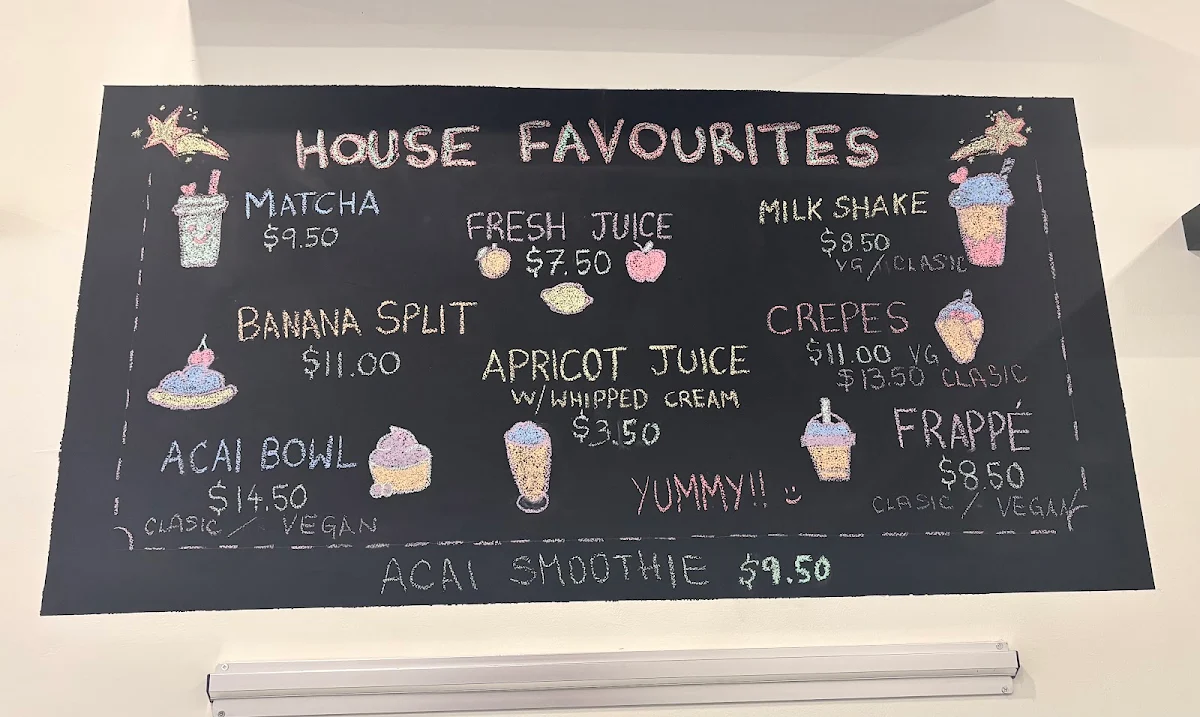 HOUSE FAVOURITES
MATCHA
$9.50
FRESH JUICE
$7.50
MILK SHAKE
$8.50
VG/CLASIC
BANANA SPLIT
$11.00
APRICOT JUICE
W/WHIPPED CREAM
$3.50
CREPES
$11.00 VG
$13.50 CLASIC
ACAI BOWL
$14.50
CLASIC / VEGAN
YUMMY!!
FRAPPÉ
$8.50
CLASIC / VEGAN
ACAI SMOOTHIE $9.50